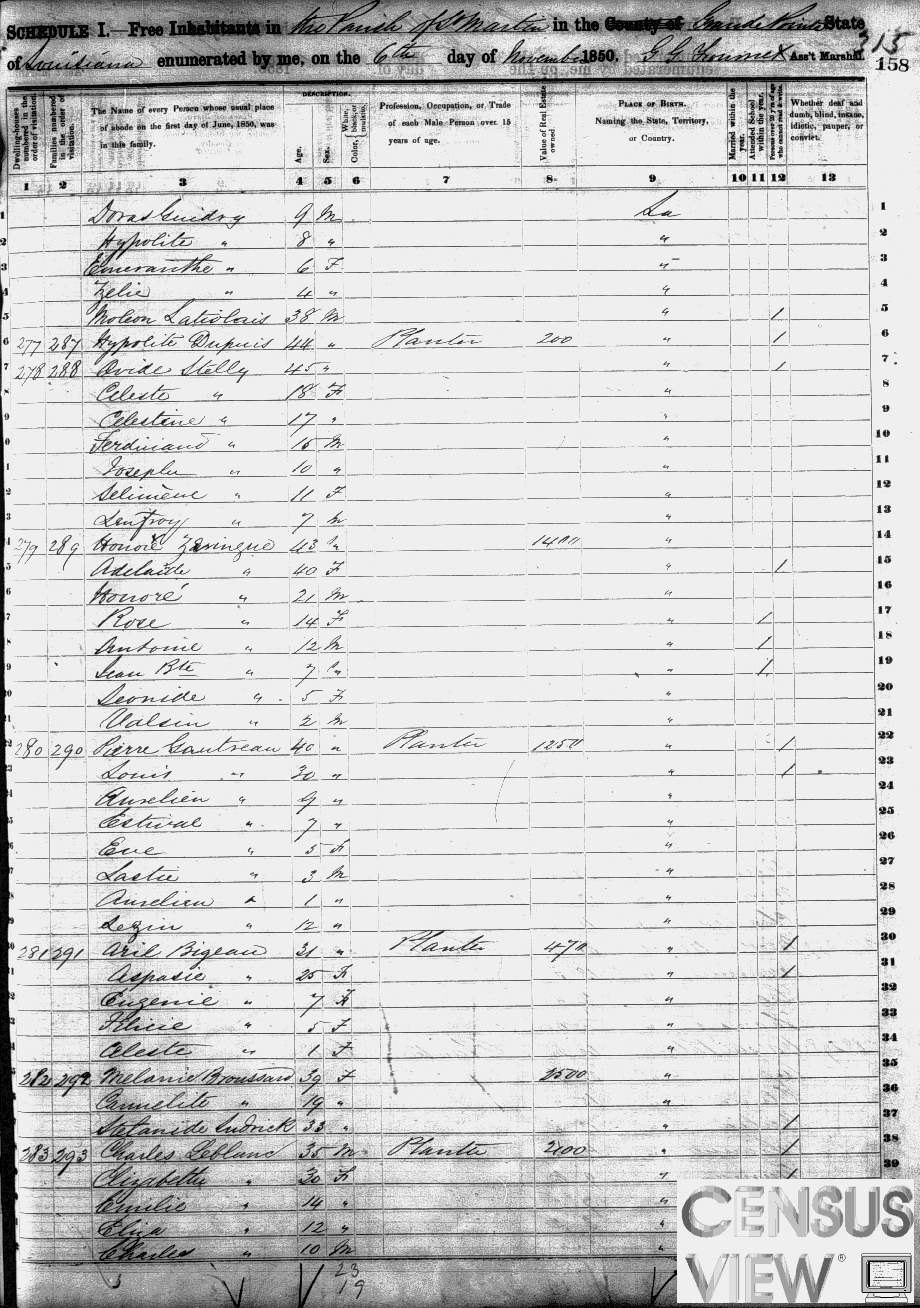 SCHEDULE I.—Free Inhabitants in the Parish of St Martin in the County of Grande Pointe State
of Louisiana enumerated by me, on the 6th day of November 1850. Ass't Marshal.
315
158
Dwelling-houses numbered in the order of visitation.
Families numbered in the order of visitation.
The Name of every Person whose usual place of abode on the first day of June, 1850, was in this family.
DESCRIPTION.
Age.
Sex.
Color, White, black, or mulatto.
Profession, Occupation, or Trade of each Male Person over 15 years of age.
Value of Real Estate owned.
PLACE OF BIRTH. Naming the State, Territory, or Country.
Married within the year.
Attended School within the year.
Persons over 20 y'rs of age who cannot read & write.
Whether deaf and dumb, blind, insane, idiotic, pauper, or convict.
1 2 3 4 5 6 7 8 9 10 11 12 13
1 Doras Guidry 9 M La 1
2 Hypolite " 8 " " 2
3 Emeranthe " 6 F " 3
4 Zelie " 4 " " 4
5 Latiolais 38 M " / 5
6 277 287 Hypolite Dupuis 44 " Planter 200 " / 6
7 278 288 Ovide Stelly 45 " " / 7
8 Celeste " 18 F " 8
9 Celestine " 17 " " 9
0 Ferdinand " 15 M " 10
1 Joseph " 10 " " 11
2 Selimène " 11 F " 12
3 " 7 M " 13
279 289 Honoré Zeringue 43 " 1400 " 14
5 Adelaide " 40 F " / 15
6 Honoré " 21 M " 16
7 Rose " 14 F " / 17
8 Antoine " 12 M " / 18
9 Jean Bte " 7 " " / 19
20 Leonide " 5 F " 20
21 Valsin " 2 M " 21
22 280 290 Pierre Gautreau 40 " Planter 1250 " / 22
Louis " 30 " " / 23
Aurelien " 9 " " 24
Estival " 7 " " 25
Eve " 5 F " 26
Lastie " 3 M " 27
Aurelien " 1 " " 28
Lezin " 12 " " 29
281 291 Bigeau 31 " Planter 470 " / 30
Aspasie " 25 F " / 31
Eugenie " 7 F " 32
Felicie " 5 F " 33
Celeste " 1 F " 34
282 292 Melanie Broussard 39 F 2500 " 36
Carmelite " 19 " " 37
33 " " / 38
283 293 Charles Leblanc 35 M Planter 2100 " / 39
Elizabeth " 30 F " /
Emilie " 14 " "
Eliza " 12 " "
Charles " 10 M "
23
19
CENSUS
VIEW®